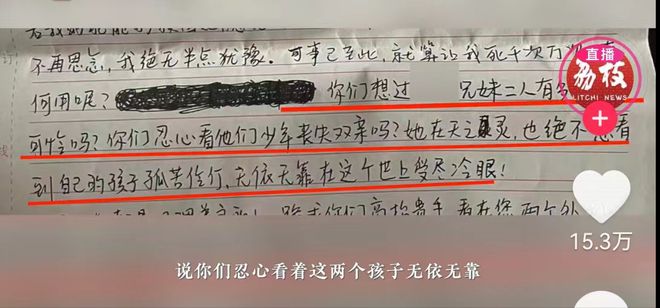 不再思念，我绝无半点犹豫。可事已至此，就算让我死千次万
何用呢？ 你们想过 兄妹二人有多
可怜吗？你们忍心看他们少年丧失双亲吗？她在天之灵，也绝不愿看
到自己的孩子孤苦伶仃，无依无靠在这个世上受尽冷眼！
直播
荔枝
LITCHI NEWS
15.3万
说你们忍心看着这两个孩子无依无靠